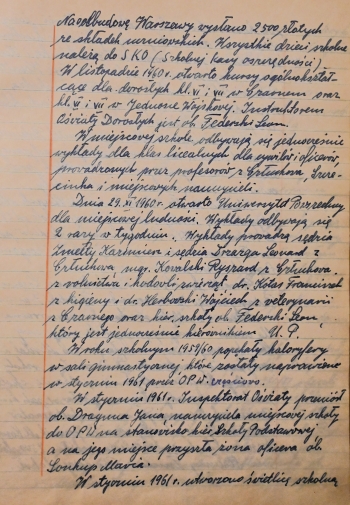 Na odbudowę Warszawy wysłano 2500 złotych
ze składek uczniowskich. Wszystkie dzieci szkolne
należą do SKO (Szkolnej Kasy oszczędności)
W listopadzie 1960 r. otwarto kursy ogólnokształ-
cące dla dorosłych kl. VI i VII w Czarnem oraz
kl. VI i VII w Jednostce Wojskowej. Instruktorem
Oświaty Dorosłych jest ob. Federski Leon.
W miejscowej szkole odbywają się jednocześnie
wykłady dla klas licealnych dla cywilów i oficerów,
prowadzonych przez profesorów z Człuchowa, Szcze-
cinka i miejscowych nauczycieli.
Dnia 29.XI 1960 r. otwarto Uniwersytet Powszechny
dla miejscowej ludności. Wykłady odbywają się
2 razy w tygodniu. Wykłady prowadzą sędzia
Kazimierz i sędzia Leonard z
Człuchowa mgr. Kowalski Ryszard z Człuchowa
z rolnictwa i hodowli zwierząt, dr. Kołas Franciszek
z higieny i dr. Herbowski Wojciech z weterynarii
z Czarnego oraz kier. szkoły ob. Federski Leon,
który jest jednocześnie kierownikiem U. P.
W roku szkolnym 1959/60 popękały kaloryfery
w sali gimnastycznej, które zostały naprawione
w styczniu 1961 przez O.P.W.
W styczniu 1961 r. Inspektorat Oświaty przeniósł
ob. Dragma Jana nauczyciela miejscowej szkoły
do O.P.W na stanowisko kier. Szkoły Podstawowej
a na jego miejsce przyszła żona oficera ob.
Maria.
W styczniu 1961 r. utworzono świetlicę szkolną